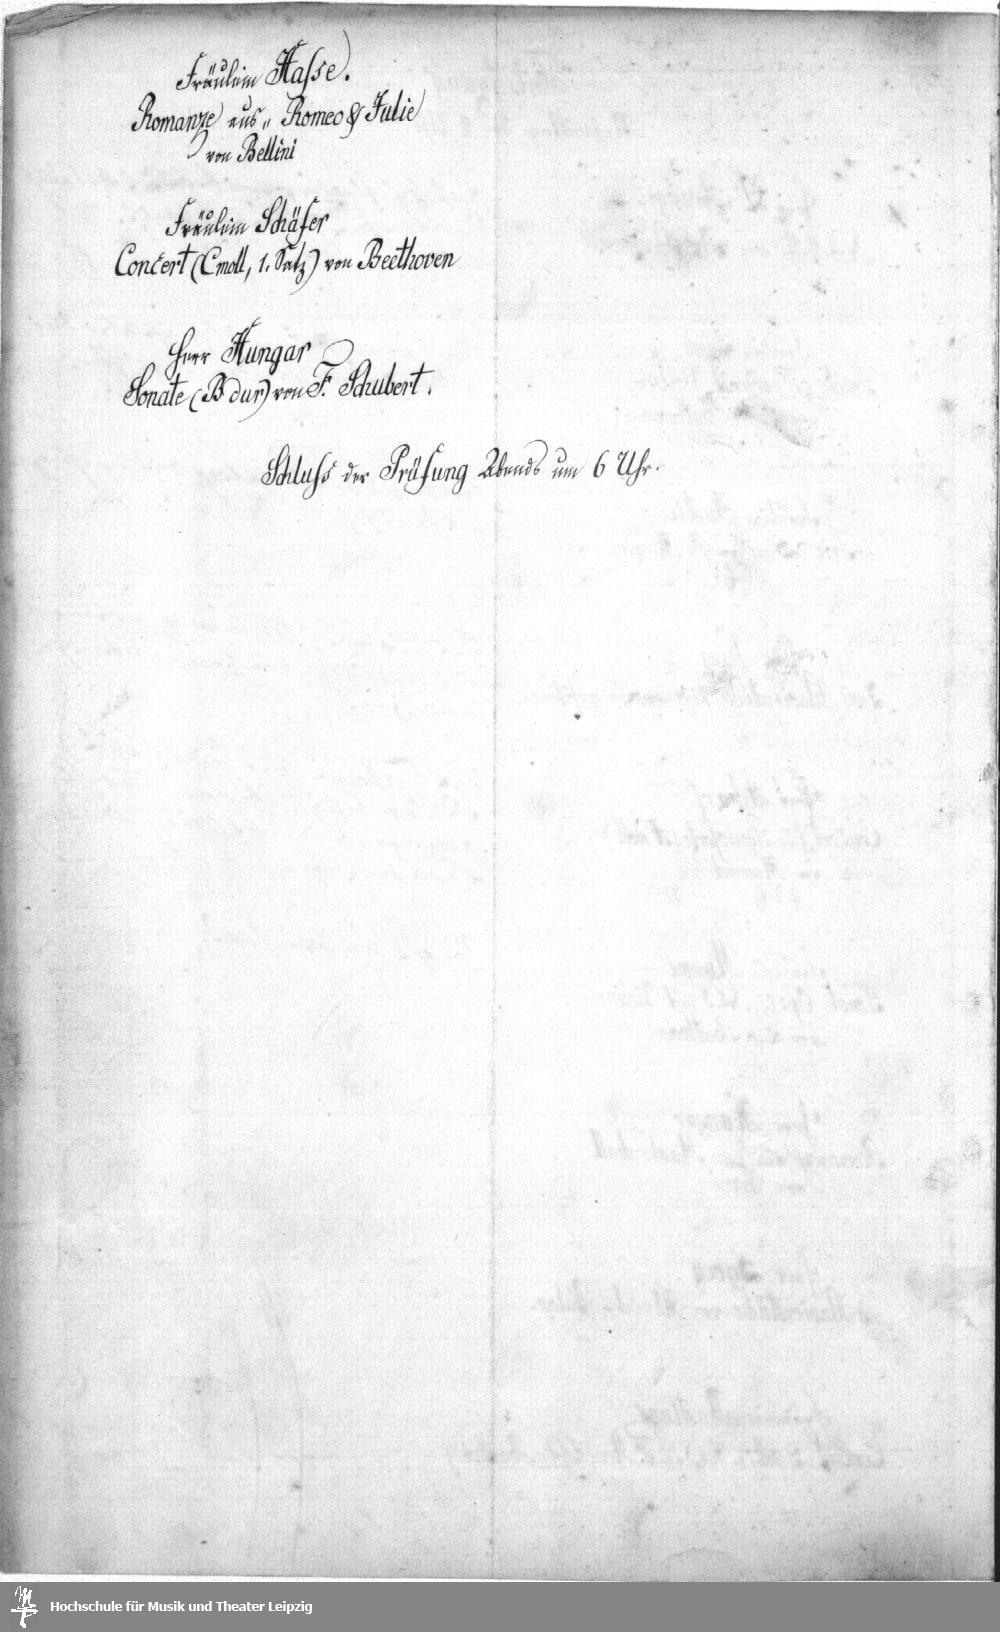 Fräulein Hasse.
Romanze aus „ Romeo & Julie
von Bellini
Fräulein Schäfer
Concert (Cmoll, 1. Satz) von Beethoven
Herr Hungar
Sonate (B dur) von F. Schubert.
Schluss der Prüfung Abends um 6 Uhr.
Hochschule für Musik und Theater Leipzig